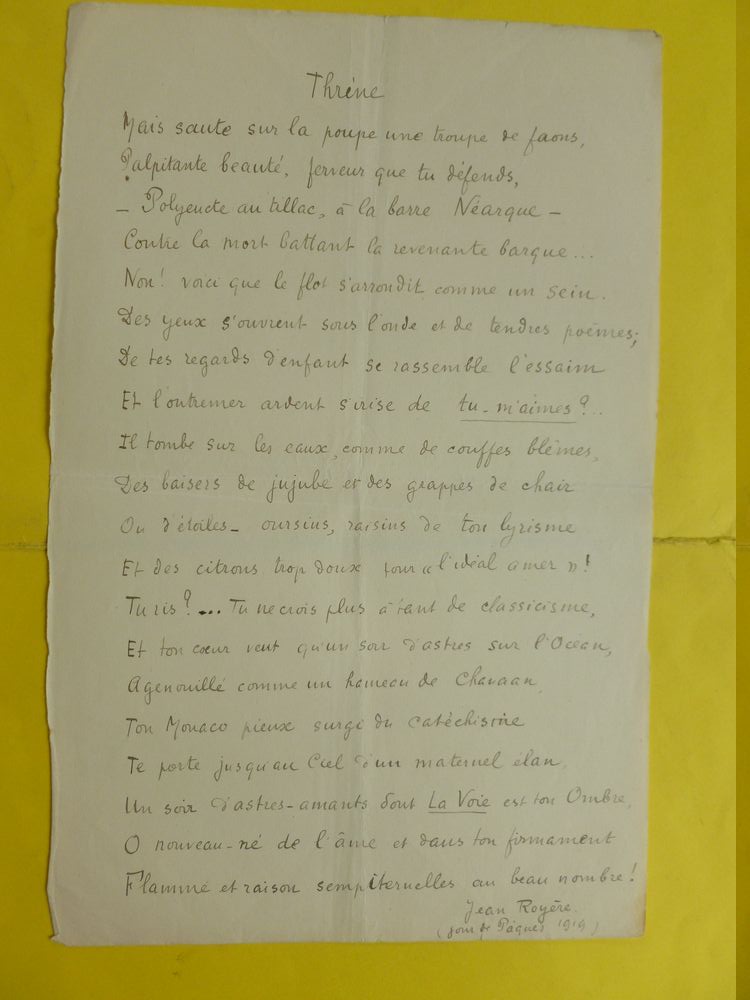 Thrène
Mais saute sur la poupe une troupe de faons,
Palpitante beauté, ferveur que tu défends,
– Polyeucte au tillac, à la barre Néarque –
Contre la mort battant la revenante barque...
Non! voici que le flot s'arrondit comme un sein.
Des yeux s'ouvrent sous l'onde et de tendres poèmes;
De tes regards d'enfant se rassemble l'essaim
Et l'outremer ardent s'irise de tu-m'aimes?..
Il tombe sur les eaux, comme de couffes blêmes,
Des baisers de jujube et des grappes de chair
Ou d'étoiles – oursins, raisins de ton lyrisme
Et des citrons trop doux pour « l'idéal amer »!
Tu ris?... Tu ne crois plus à tant de classicisme,
Et ton cœur veut qu'un soir d'astres sur l'Océan,
Agenouillé comme un hameau de Chanaan,
Ton Monaco pieux surgi du catéchisme
Te porte jusqu'au Ciel d'un maternel élan,
Un soir d'astres-amants dont La Voie est ton Ombre,
O nouveau-né de l'âme et dans ton firmament
Flamme et raison sempiternelles au beau nombre!
Jean Royère.
(jour de Pâques 1919)